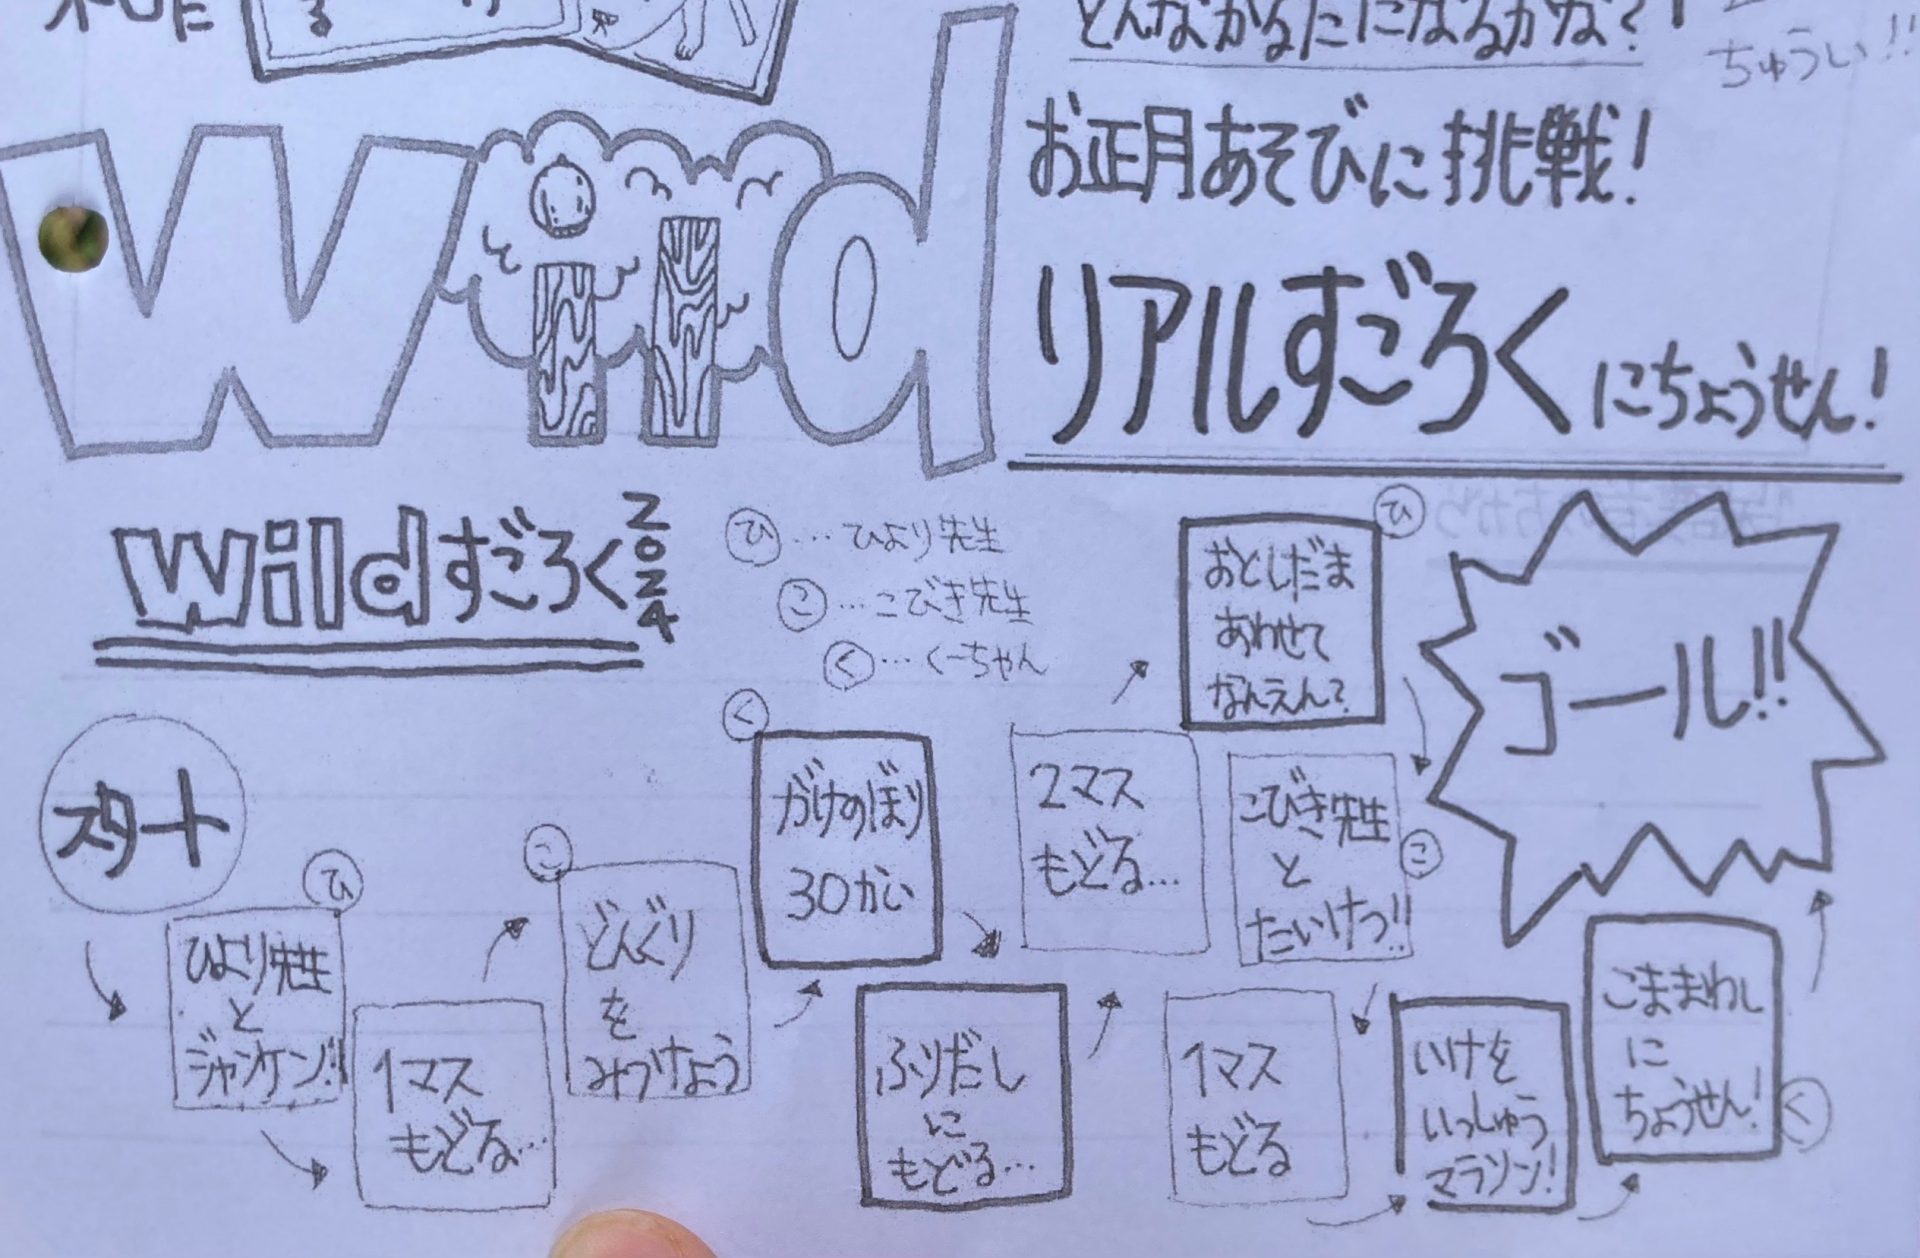 る
どんなかるたになるかな？！
ちゅうい!!
お正月あそびに挑戦！
Wild
リアルすごろくにちょうせん！
Wildすごろく2024
ひ…ひより先生
こ…こびき先生
く…くーちゃん
スタート
ひ
ひより先生
と
ジャンケン!!
1マス
もどる…
こ
どんぐり
を
みつけよう
く
がけのぼり
30かい
ふりだし
に
もどる…
2マス
もどる…
ひ
おとしだま
あわせて
なんえん？
こびき先生
と
たいけつ!!
こ
1マス
もどる
いけを
いっしゅう
マラソン！
こままわし
に
ちょうせん！
く
ゴール!!